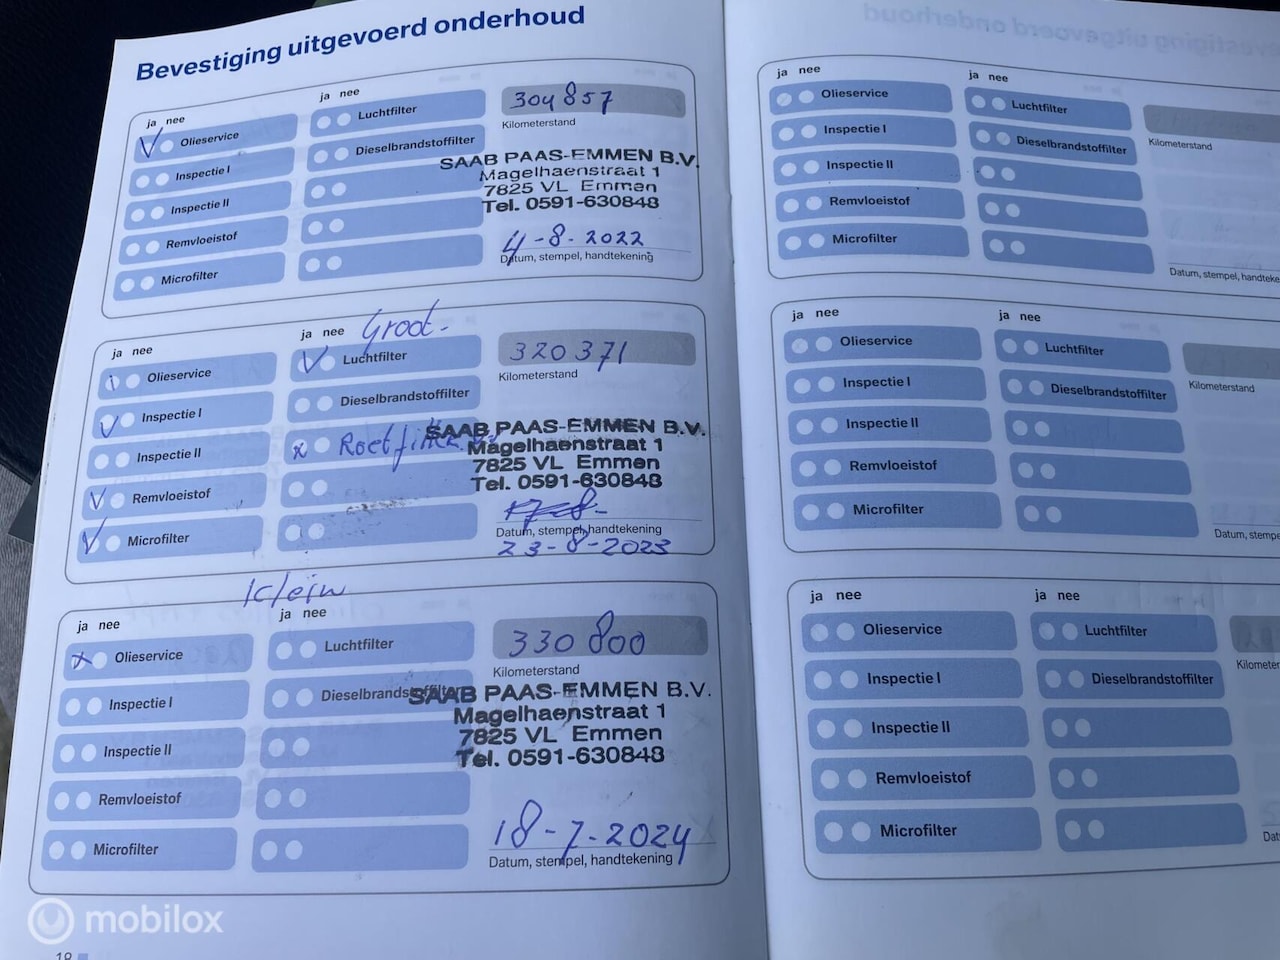 Bevestiging uitgevoerd onderhoud
ja nee
ja nee
Olieservice
Luchtfilter
Inspectie I
Dieselbrandstoffilter
Inspectie II
Remvloeistof
Microfilter
304857
Kilometerstand
SAAB PAAS-EMMEN B.V.
Magelhaenstraat 1
7825 VL Emmen
Tel. 0591-630848
4-8-2022
Datum, stempel, handtekening
Groot-
ja nee
ja nee
Olieservice
Luchtfilter
Inspectie I
Dieselbrandstoffilter
Inspectie II
Remvloeistof
Microfilter
320371
Kilometerstand
SAAB PAAS-EMMEN B.V.
Magelhaenstraat 1
7825 VL Emmen
Tel. 0591-630848
Datum, stempel, handtekening
23-8-2023
Klein
ja nee
ja nee
Olieservice
Luchtfilter
Inspectie I
Dieselbrandstoffilter
Inspectie II
Remvloeistof
Microfilter
330800
Kilometerstand
SAAB PAAS-EMMEN B.V.
Magelhaenstraat 1
7825 VL Emmen
Tel. 0591-630848
18-7-2024
Datum, stempel, handtekening
mobilox
ja nee
ja nee
Olieservice
Luchtfilter
Inspectie I
Dieselbrandstoffilter
Inspectie II
Remvloeistof
Microfilter
Kilometerstand
Datum, stempel, handteke
ja nee
ja nee
Olieservice
Luchtfilter
Inspectie I
Dieselbrandstoffilter
Inspectie II
Remvloeistof
Microfilter
Kilometerstand
Datum, stempe
ja nee
ja nee
Olieservice
Luchtfilter
Inspectie I
Dieselbrandstoffilter
Inspectie II
Remvloeistof
Microfilter
Kilometer
Dat